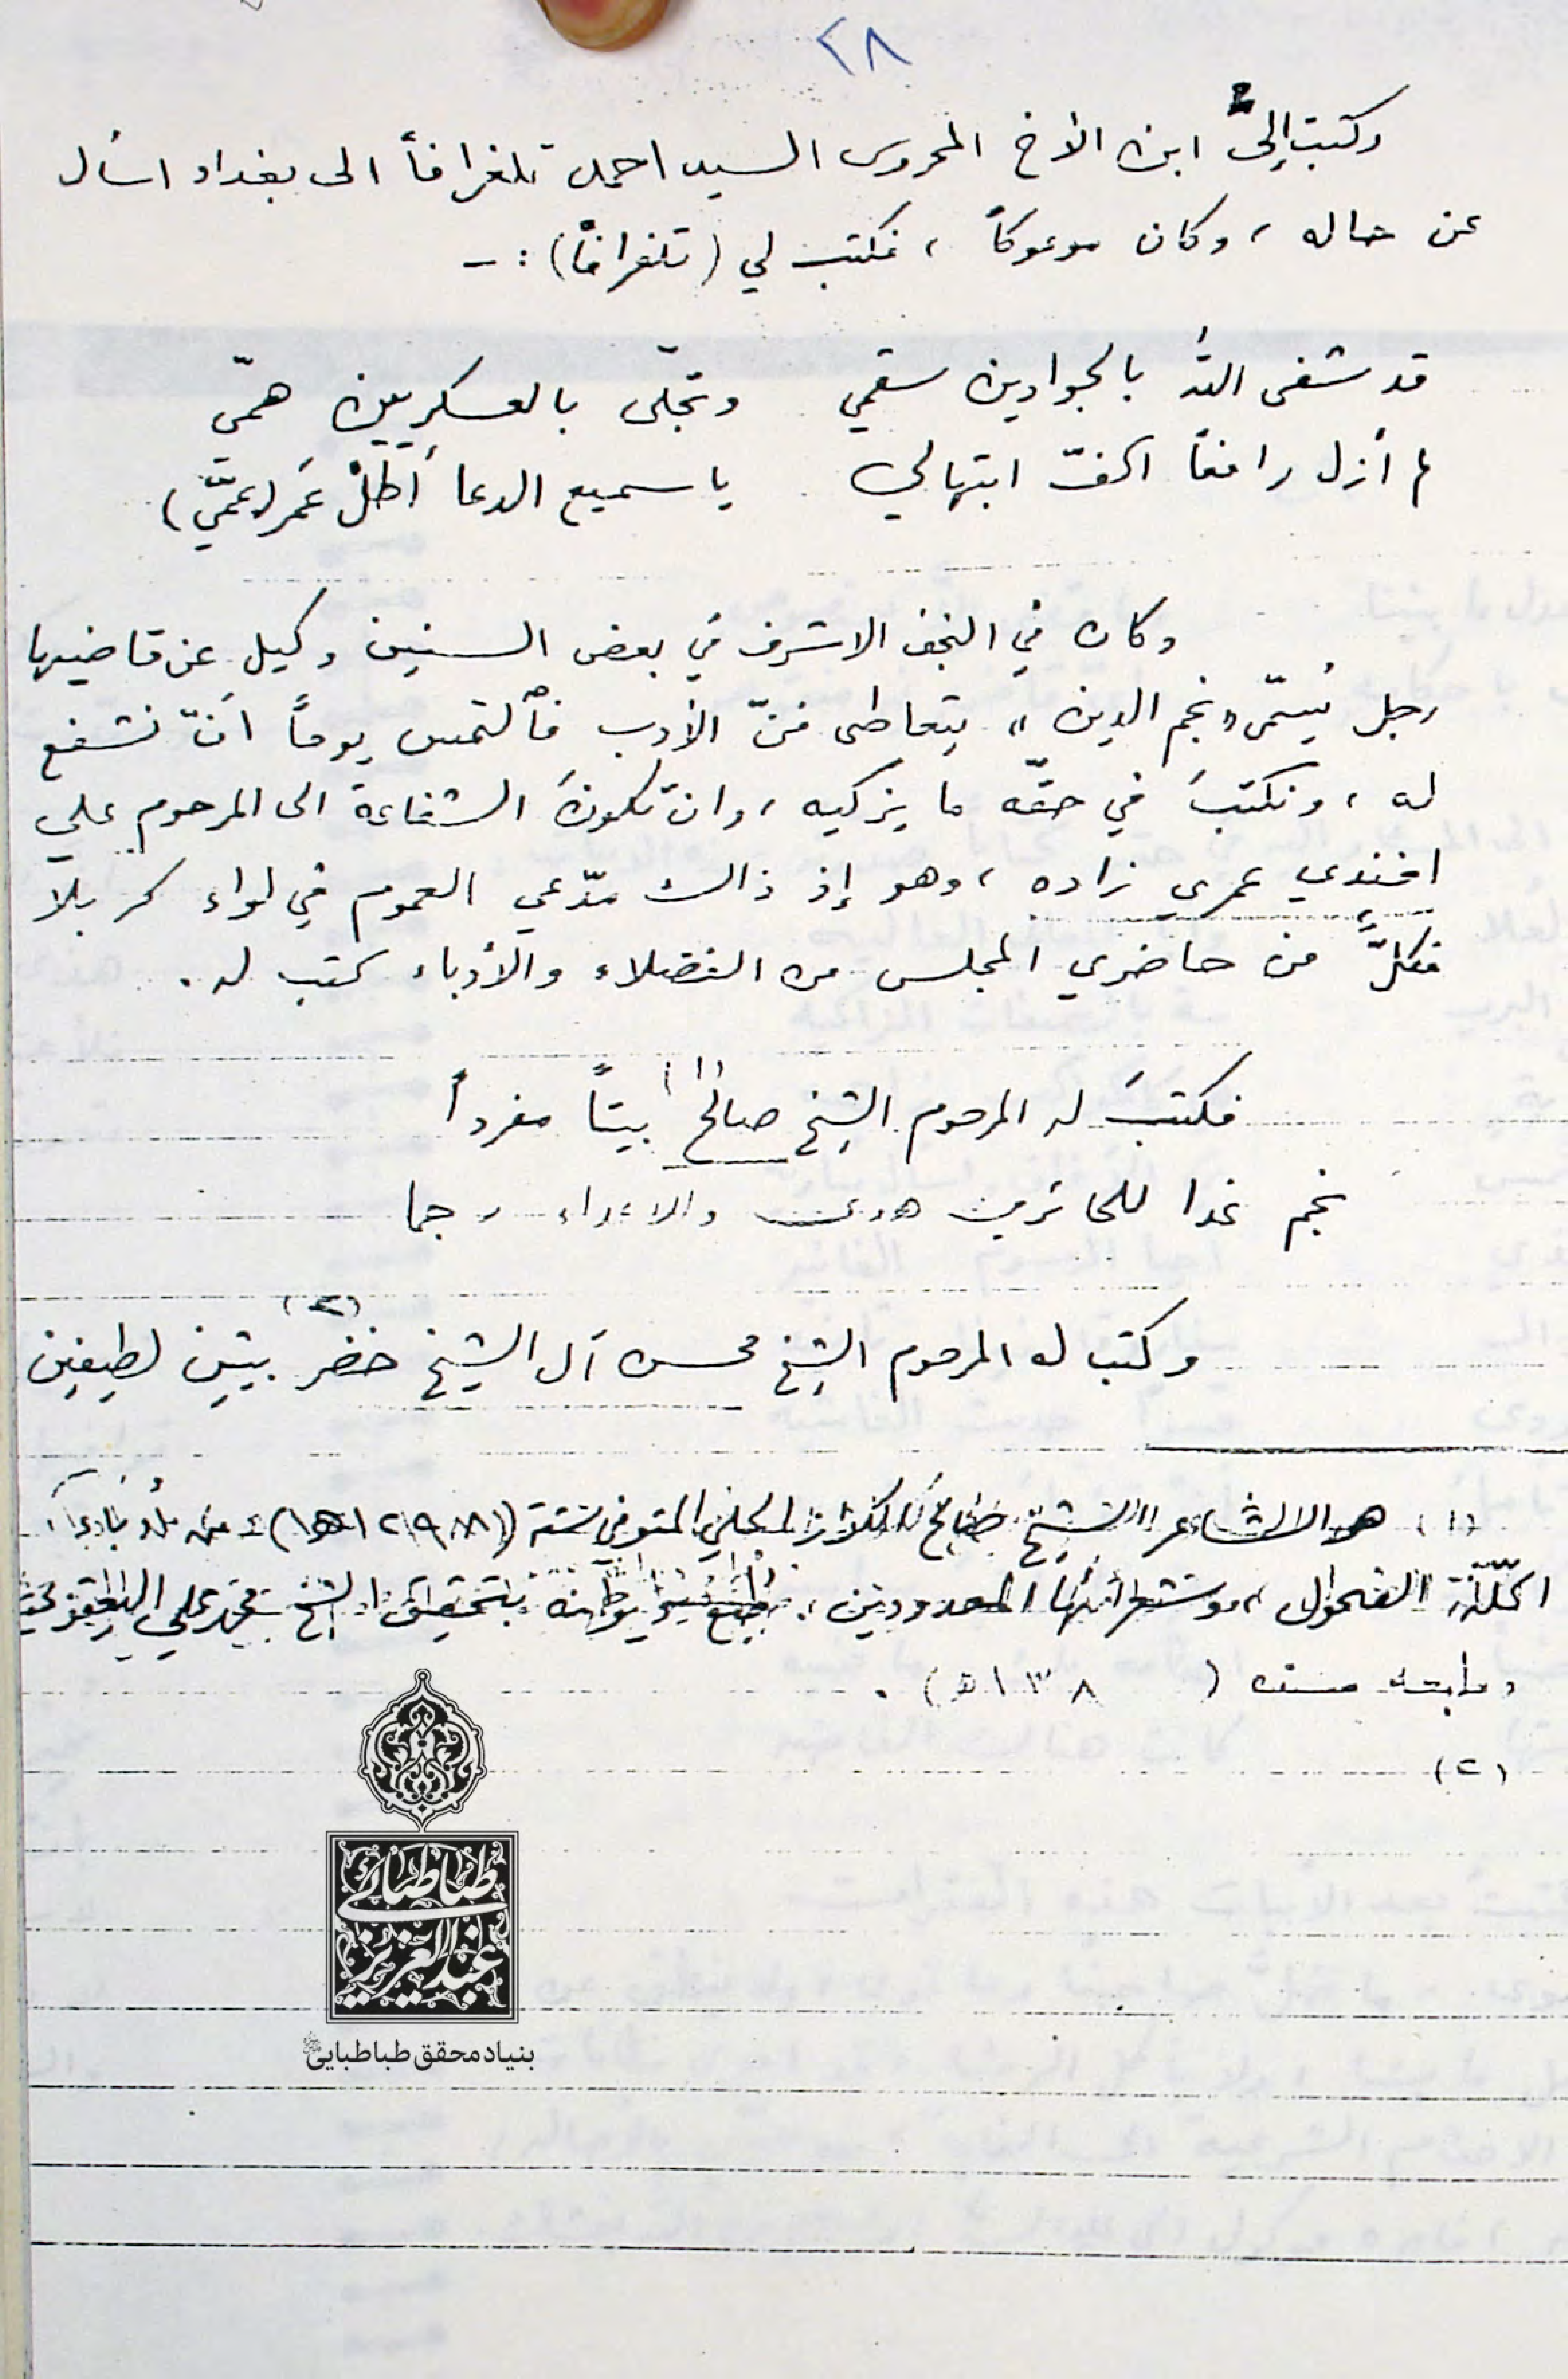 ٢٨
وكتبت إلى ابن الأخ المحروس السيد احمد تلغرافاً الى بغداد اسأل
عن حاله ، وكان موعوكاً ، فكتب لي (تلغرافاً) : -
قد شفى الله بالجوادين سقمي وتجلّى بالعسكريين همّي
لم أزل رافعاً اكفّ ابتهالي يا سميع الدعا أطلْ عمَر (عمّي)
وكان في النجف الاشرف في بعض السنين وكيل عن قاضيها
رجل يُسمّى «نجم الدين» يتعاطى فنّ الأدب فألتمس يوماً انّ نشفع
له ، ونكتبَ في حقّه ما يزكيه ، وان تكونَ الشفاعة الى المرحوم علي
افندي عمري زاده ، وهو إذ ذالك مدّعي العموم في لواء كربلا
فكلٌّ من حاضري المجلس من الفضلاء والأدباء كتب له .
فكتبَ له المرحوم الشيخ صالح (١) بيتاً مفرداً
نجم غدا للحائرين هدى وللاعداء رجما
وكتب له المرحوم الشيخ محسن آل الشيخ خضر (٢) بيتين لطيفين
(١) هو الشاعر الشيخ صالح الكواز الحلي المتوفى سنة
الفحول ، وشعرائها المعدودين ، بتحقيق الشيخ محمد علي اليعقوبي
سنة ( ١٣٨ هـ) .
(٢)
طباطبائي
عبدالعزيز
بنیاد محقق طباطبایی